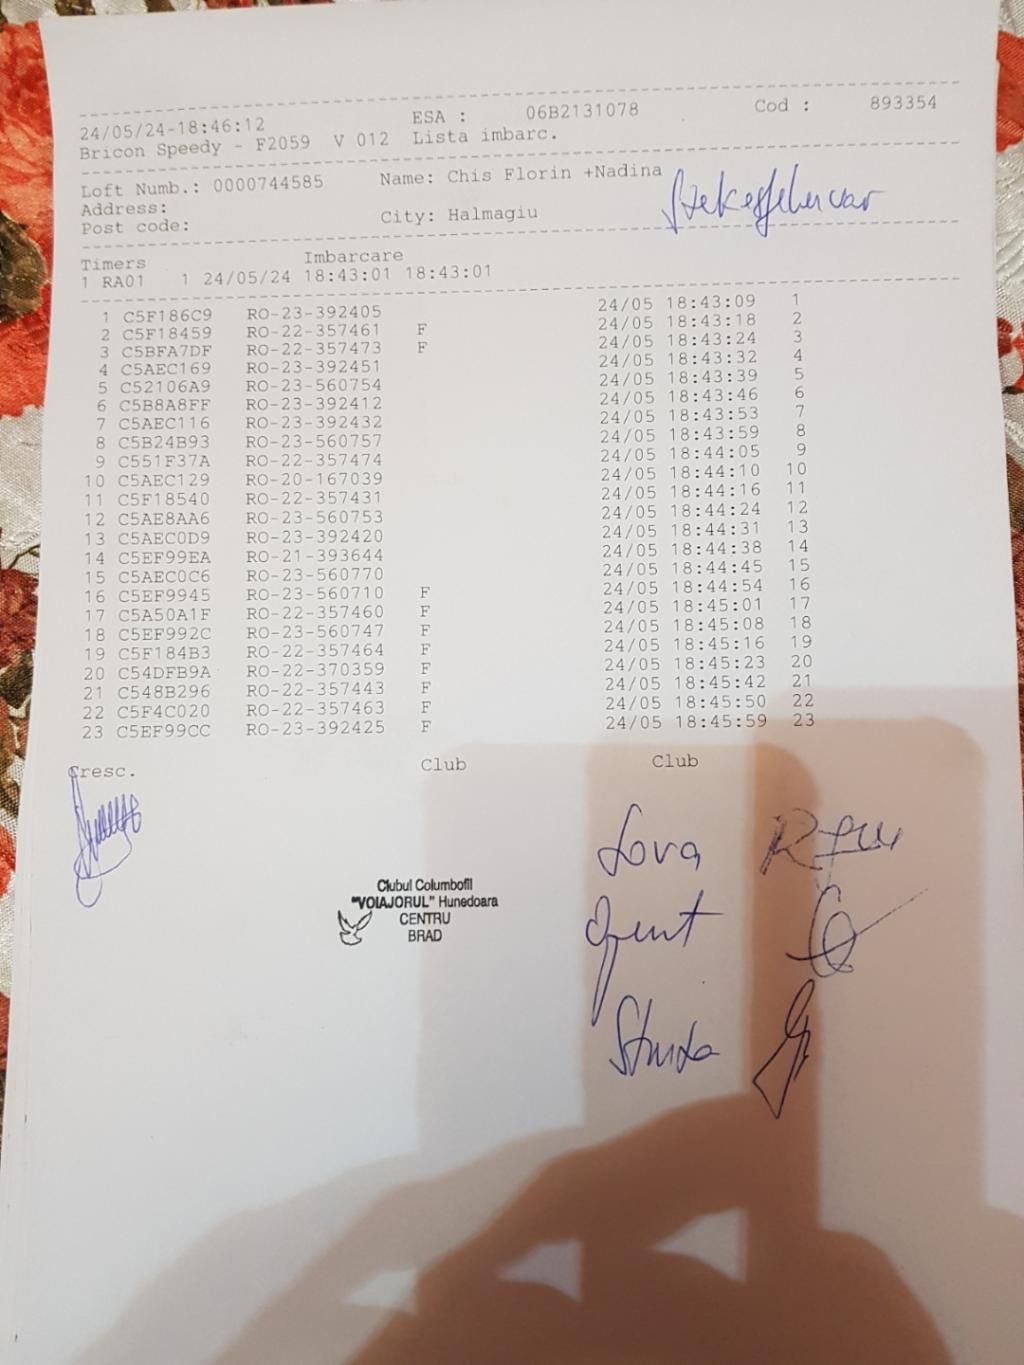 24/05/24-18:46:12 ESA : 06B2131078 Cod : 893354
Bricon Speedy - F2059 V 012 Lista imbarc.
Loft Numb.: 0000744585 Name: Chis Florin +Nadina
Address:
Post code: City: Halmagiu
Szekesfehervar
Timers Imbarcare
1 RA01 1 24/05/24 18:43:01 18:43:01
1 C5F186C9 RO-23-392405 24/05 18:43:09 1
2 C5F18459 RO-22-357461 F 24/05 18:43:18 2
3 C5BFA7DF RO-22-357473 F 24/05 18:43:24 3
4 C5AEC169 RO-23-392451 24/05 18:43:32 4
5 C52106A9 RO-23-560754 24/05 18:43:39 5
6 C5B8A8FF RO-23-392412 24/05 18:43:46 6
7 C5AEC116 RO-23-392432 24/05 18:43:53 7
8 C5B24B93 RO-23-560757 24/05 18:43:59 8
9 C551F37A RO-22-357474 24/05 18:44:05 9
10 C5AEC129 RO-20-167039 24/05 18:44:10 10
11 C5F18540 RO-22-357431 24/05 18:44:16 11
12 C5AE8AA6 RO-23-560753 24/05 18:44:24 12
13 C5AEC0D9 RO-23-392420 24/05 18:44:31 13
14 C5EF99EA RO-21-393644 24/05 18:44:38 14
15 C5AEC0C6 RO-23-560770 24/05 18:44:45 15
16 C5EF9945 RO-23-560710 F 24/05 18:44:54 16
17 C5A50A1F RO-22-357460 F 24/05 18:45:01 17
18 C5EF992C RO-23-560747 F 24/05 18:45:08 18
19 C5F184B3 RO-22-357464 F 24/05 18:45:16 19
20 C54DFB9A RO-22-370359 F 24/05 18:45:23 20
21 C548B296 RO-22-357443 F 24/05 18:45:42 21
22 C5F4C020 RO-22-357463 F 24/05 18:45:50 22
23 C5EF99CC RO-23-392425 F 24/05 18:45:59 23
Cresc. Club Club
Clubul Columbofil
"VOIAJORUL" Hunedoara
CENTRU
BRAD